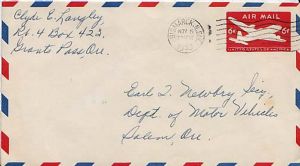 Clyde E. Langley
Rt. 4 Box 422
Grants Pass Ore.
AIR MAIL
6¢ 6¢
UNITED STATES OF AMERICA
Earl T. Newbry Sec.
Dept. of Motor Vehicles
Salem, Ore.